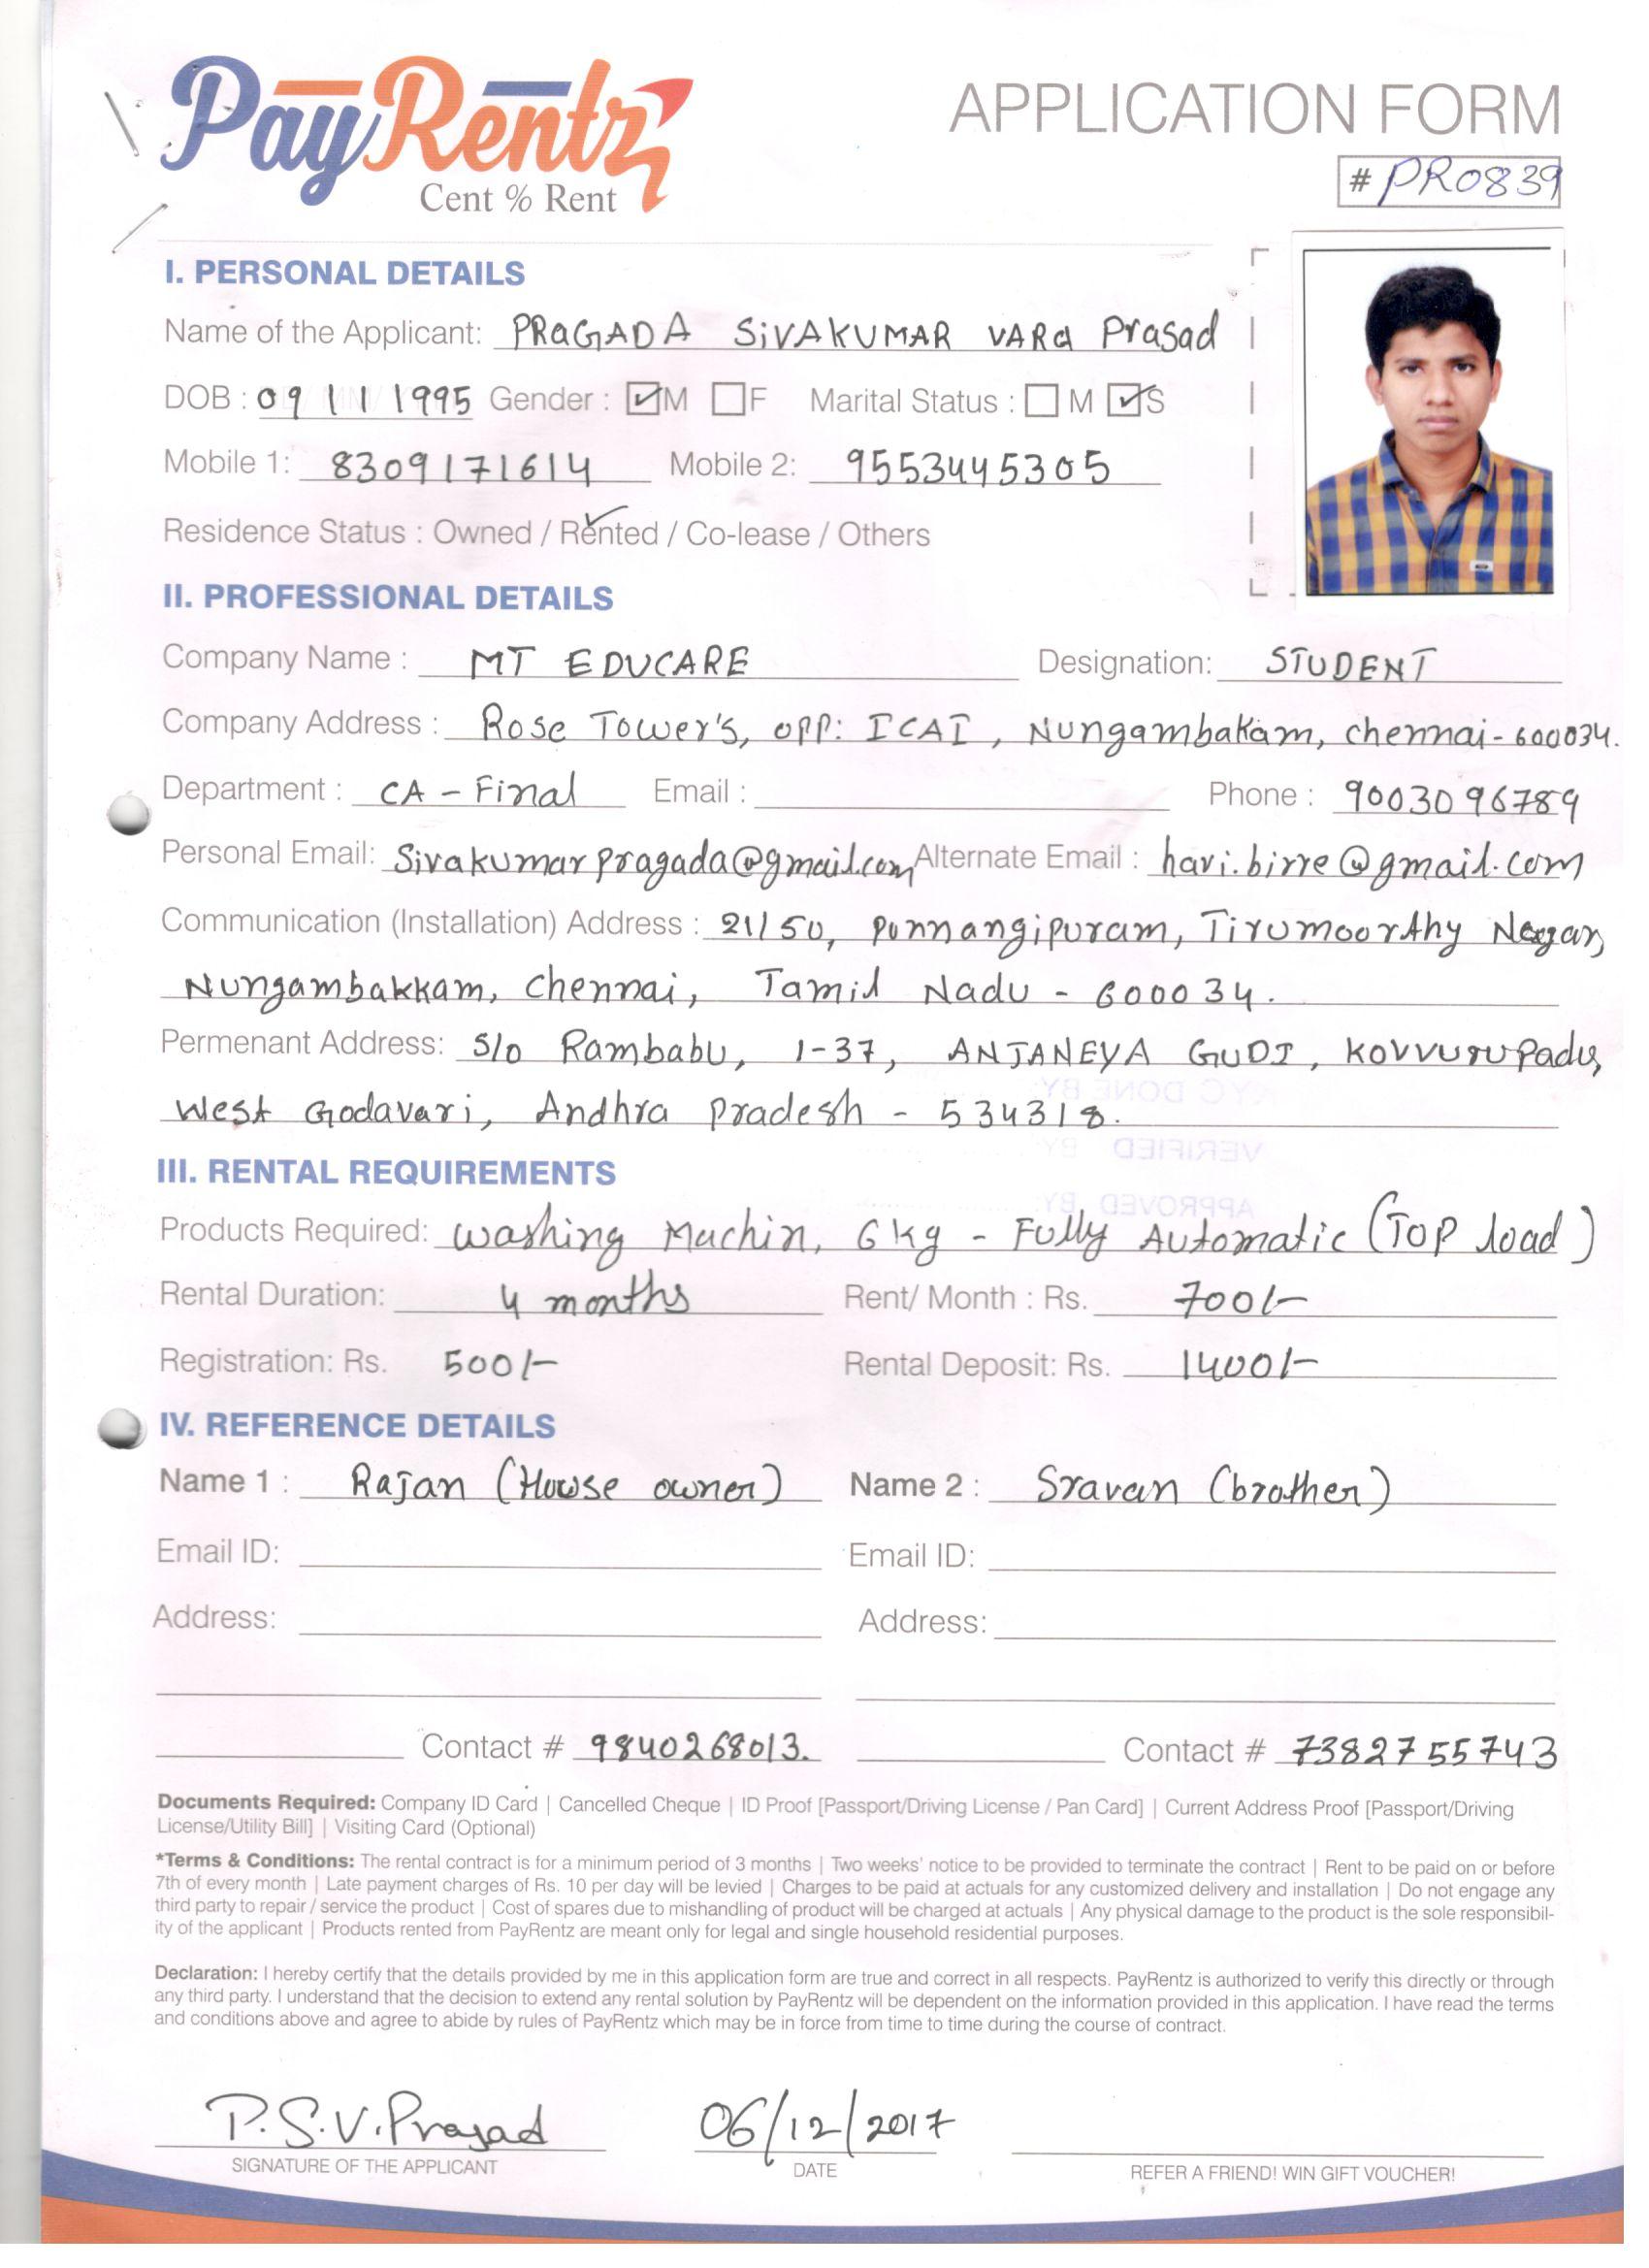 PayRentz
Cent % Rent
APPLICATION FORM
# PR0839
I. PERSONAL DETAILS
Name of the Applicant: PRaGADA SiVAKUMAR VARa Prasad
DOB : 09 1 1 1995 Gender : M F Marital Status : M S
Mobile 1: 8309171614 Mobile 2: 9553445305
Residence Status : Owned / Rented / Co-lease / Others
II. PROFESSIONAL DETAILS
Company Name : MT EDUCARE Designation: STUDENT
Company Address : Rose Tower's, opp: ICAI, Nungambakam, chennai-600034.
Department : CA - Final Email : Phone : 9003096789
Personal Email: Sivakumarpragada@gmail.com Alternate Email : hari.birre@gmail.com
Communication (Installation) Address : 21/50, Ponnangipuram, Tirumoorthy Nagar,
Nungambakkam, chennai, Tamil Nadu - 600034.
Permenant Address: S/o Rambabu, 1-37, ANJANEYA GUDI, Kovvurupadu,
West Godavari, Andhra pradesh - 534318.
YC DONE BY
VERIFIED BY
APPROVED BY
III. RENTAL REQUIREMENTS
Products Required: Washing Machin, 6kg - Fully Automatic (Top load)
Rental Duration: 4 months Rent/ Month : Rs. 700/-
Registration: Rs. 500/- Rental Deposit: Rs. 1400/-
IV. REFERENCE DETAILS
Name 1 : Rajan (House owner) Name 2 : Sravan (brother)
Email ID: Email ID:
Address: Address:
Contact # 9840268013. Contact # 7382755743
Documents Required: Company ID Card | Cancelled Cheque | ID Proof [Passport/Driving License / Pan Card] | Current Address Proof [Passport/Driving
License/Utility Bill] | Visiting Card (Optional)
*Terms & Conditions: The rental contract is for a minimum period of 3 months | Two weeks' notice to be provided to terminate the contract | Rent to be paid on or before
7th of every month | Late payment charges of Rs. 10 per day will be levied | Charges to be paid at actuals for any customized delivery and installation | Do not engage any
third party to repair / service the product | Cost of spares due to mishandling of product will be charged at actuals | Any physical damage to the product is the sole responsibil-
ity of the applicant | Products rented from PayRentz are meant only for legal and single household residential purposes.
Declaration: I hereby certify that the details provided by me in this application form are true and correct in all respects. PayRentz is authorized to verify this directly or through
any third party. I understand that the decision to extend any rental solution by PayRentz will be dependent on the information provided in this application. I have read the terms
and conditions above and agree to abide by rules of PayRentz which may be in force from time to time during the course of contract.
P.S.V.Prasad 06/12/2017
SIGNATURE OF THE APPLICANT DATE REFER A FRIEND! WIN GIFT VOUCHER!